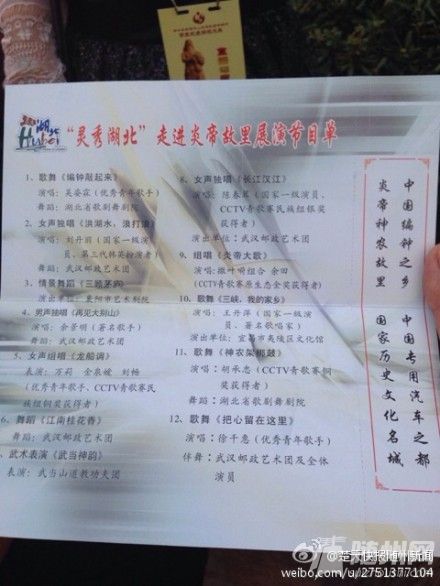 灵秀湖北
Hubei
“灵秀湖北”走进炎帝故里展演节目单
1、歌舞《编钟敲起来》
演唱：吴姿霖（优秀青年歌手）
舞蹈：湖北省歌剧舞剧院
2、女声独唱《洪湖水，浪打浪》
演唱：刘丹丽（国家一级演
员、第三代韩英扮演者）
舞蹈：武汉邮政艺术团
3、情景舞蹈《三顾茅庐》
演出：襄阳市艺术剧院
4、男声独唱《再见大别山》
演唱：余景明（著名歌手）
舞蹈：武汉邮政艺术团
5、女声组唱《龙船调》
表演：万莉 金泉媛 刘畅
（优秀青年歌手、CCTV青歌赛民
族组铜奖获得者）
6、舞蹈《江南桂花香》
舞蹈：武汉邮政艺术团
、武术表演《武当神韵》
表演：武当山道教功夫团
8、女声独唱《长江汉江》
演唱：陈春茸（国家一级演员、
CCTV青歌赛民族组银奖
获得者）
演出单位：武汉邮政艺术团
9、组唱《炎帝大歌》
演唱：撒叶嗬组合 余田
（CCTV青歌赛原生态金奖获得者）
10、歌舞《三峡，我的家乡》
演唱：王丹萍（国家一级演
员、著名歌唱家）
演出单位：宜昌市夷陵区文化馆
11、歌舞《神农架梆鼓》
演唱：胡承志（CCTV青歌赛铜
奖获得者）
舞蹈：湖北省歌剧舞剧院
12、歌舞《把心留在这里》
演唱：徐千惠（优秀青年歌手）
伴舞：武汉邮政艺术团及全体
演员
中国编钟之乡 中国专用汽车之都
炎帝神农故里 国家历史文化名城
随州网
@楚天快报随州新闻
weibo.com/u/2751377104